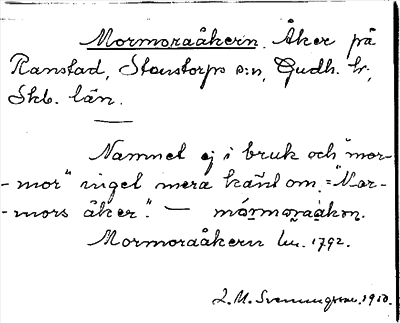 Mormoraåkern. Åker på
Ranstad, Stenstorps s:n, Gudh. h.,
Skb. län.
Namnet ej i bruk och "mor-
-mor" inget mera känt om. = "Mor-
-mors åker". — mórmoraåkɐn.
Mormoraåkern lm. 1792.